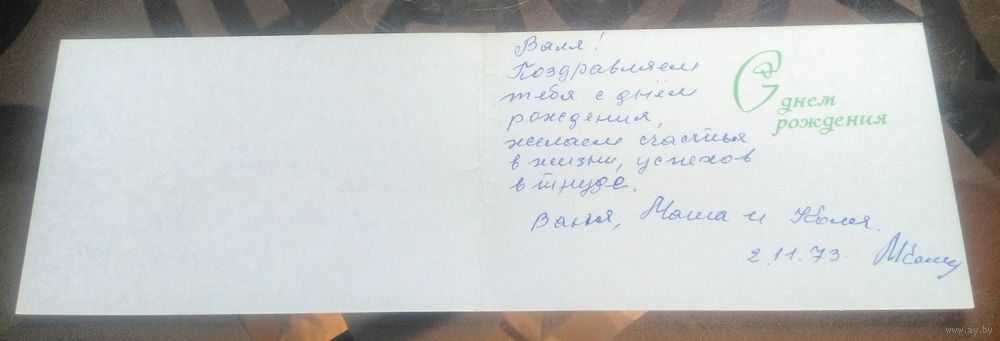 Валя!
Поздравляем
тебя с днём
рождения,
желаем счастья
в жизни, успехов
в труде.
Ваня, Маша и Коля.
2.11.73.
С днем
рождения
www.ay.by